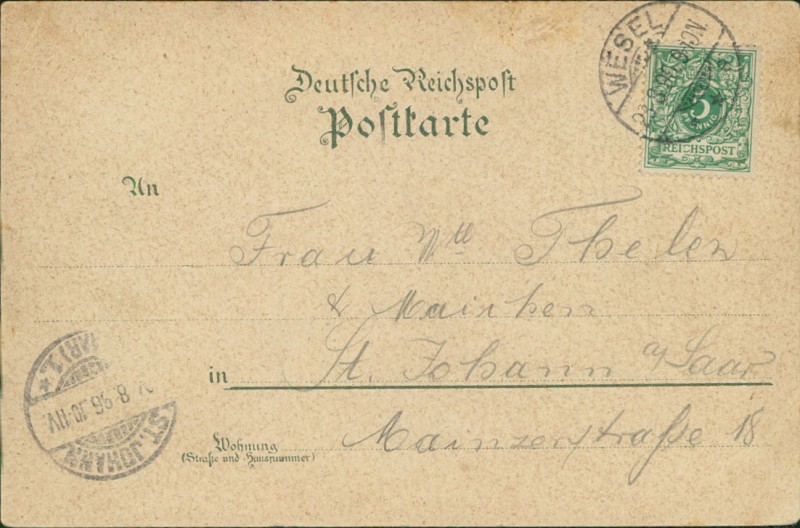 WESEL
5
REICHSPOST
Deutsche Reichspost
Postkarte
An
Frau Wtt Thelen
& Mainherr
in St. Johann a/Saar
Mainzerstraße 18
Wohnung
(Straße und Hausnummer)
ST. JOHANN
8 96 10-11V